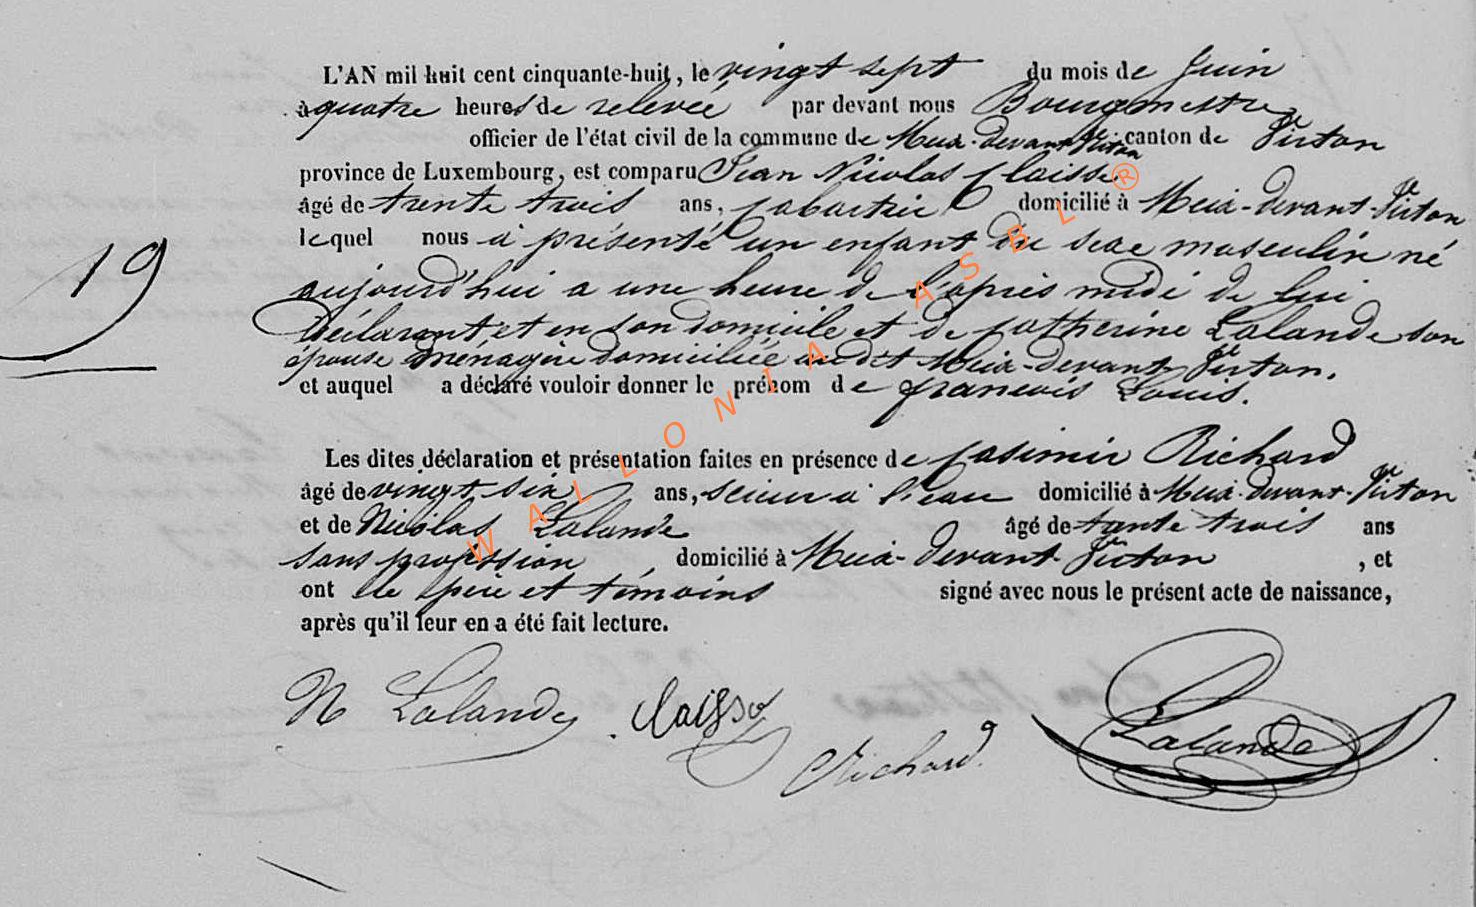 L'AN mil huit cent cinquante-huit, le vingt sept du mois de Juin
à quatre heures de relevée par devant nous Bourgmestre
officier de l'état civil de la commune de Meix-devant-Virton canton de Virton
province de Luxembourg, est comparu Jean Nicolas Claisse
âgé de trente trois ans, domicilié à Meix-devant-Virton
lequel nous a présenté un enfant du sexe masculin né
aujourd'hui a une heure de l'après midi de lui
déclarant et en son domicile et de Catherine Lalande son
épouse ménagère domiciliée au dit Meix-devant Virton.
et auquel a déclaré vouloir donner le prénom de francois Louis.
19
Les dites déclaration et présentation faites en présence de Casimir Richard
âgé de vingt six ans, scieur à l'eau domicilié à Meix-devant-Virton
et de Nicolas Lalande âgé de trante trois ans
sans profession, domicilié à Meix-devant Virton, et
ont le père et témoins signé avec nous le présent acte de naissance,
après qu'il leur en a été fait lecture.
N Lalande Claisse
Richard
Lalande
WALLONIA ASBL ®